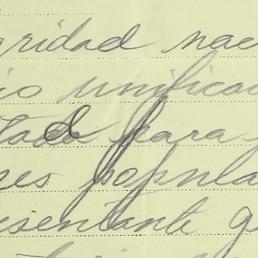 gridad nac
io unifica
tada para
res popula
esentante g